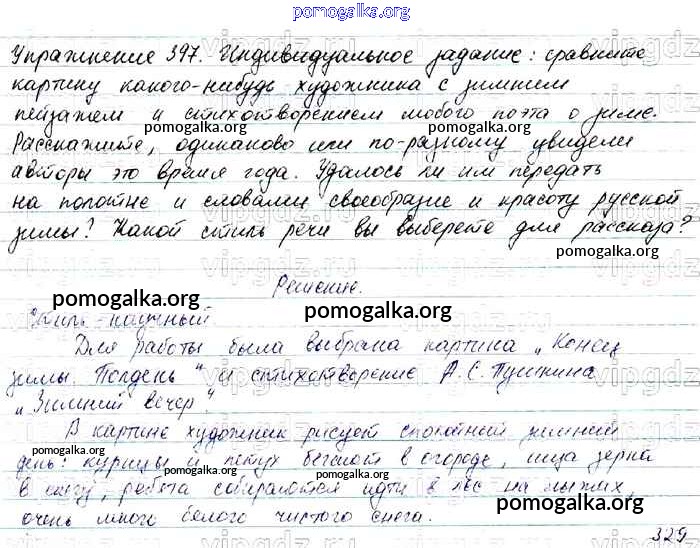 pomogalka.org
Упражнение 397. Индивидуальное задание: сравните
картину какого-нибудь художника с зимним
пейзажем и стихотворением любого поэта о зиме.
Расскажите, одинаково или по-разному увидели
авторы это время года. Удалось ли им передать
на полотне и словами своеобразие и красоту русской
зимы? Какой стиль речи вы выберете для рассказа?
Решение.
Стиль - научный.
Для работы была выбрана картина „Конец
зимы. Полдень“ и стихотворение А.С. Пушкина
„Зимний вечер“.
В картине художник рисует спокойный зимний
день: курицы и петух бегают в огороде, ища зерна
в снегу, ребята собираются идти в лес на лыжах,
очень много белого чистого снега.
329